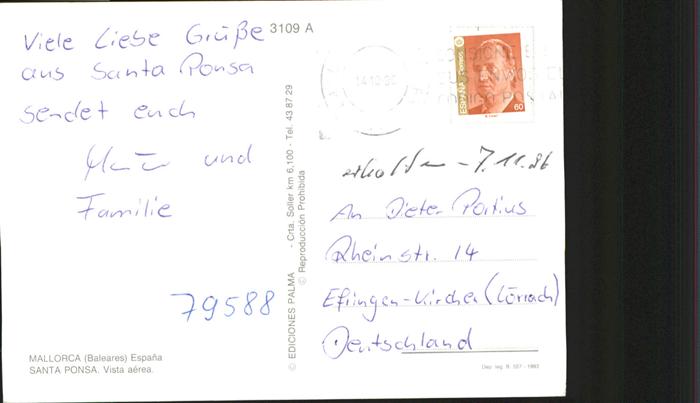 Viele Liebe Grüße
aus Santa Ponsa
sendet euch
und
Familie
79588
MALLORCA (Baleares) España
SANTA PONSA. Vista aérea.
3109 A
© EDICIONES PALMA - Crta. Soller km 6,100 - Tel. 43 87 29
© Reproducción Prohibida
ESPAÑA
60
erhalten - 7.11.96
An Dieter Portius
Rheinstr. 14
Efringen-Kirchen (Lörrach)
Deutschland
Dep. leg. B. 527 - 1993